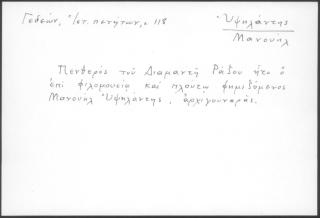 Γεδεών, Ἀ/στ. πενητων, σ 118
Ὑψηλάντης
Μανουὴλ
Πενθερὸς τοῦ Διαμαντῆ Ράζου ἦτο ὁ
ἐπὶ φιλομουσίᾳ καὶ πλούτῳ φημιζόμενος
Μανουὴλ Ὑψηλάντης, ἀρχιγουναρᾶς.